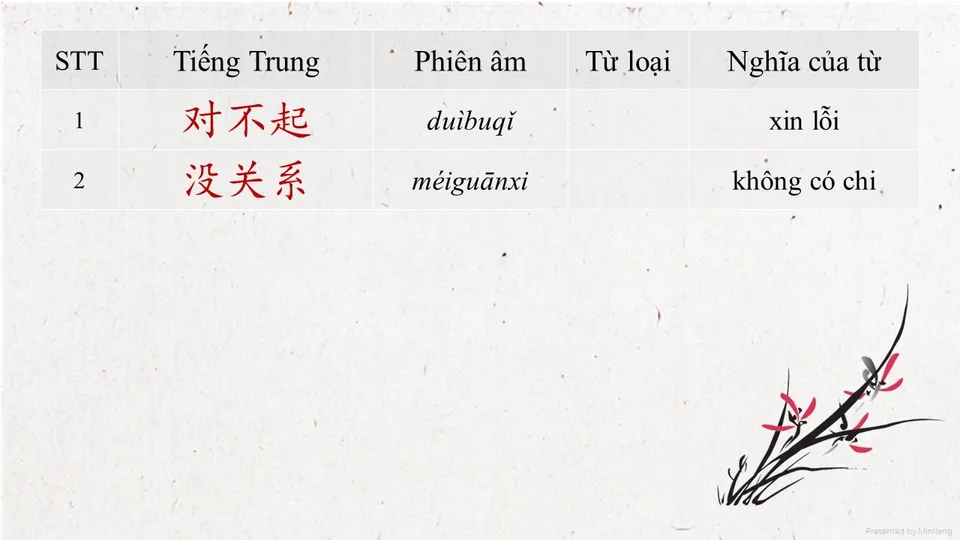 STT Tiếng Trung Phiên âm Từ loại Nghĩa của từ
1 对不起 duìbuqǐ xin lỗi
2 没关系 méiguānxi không có chi
Presented by Minliang